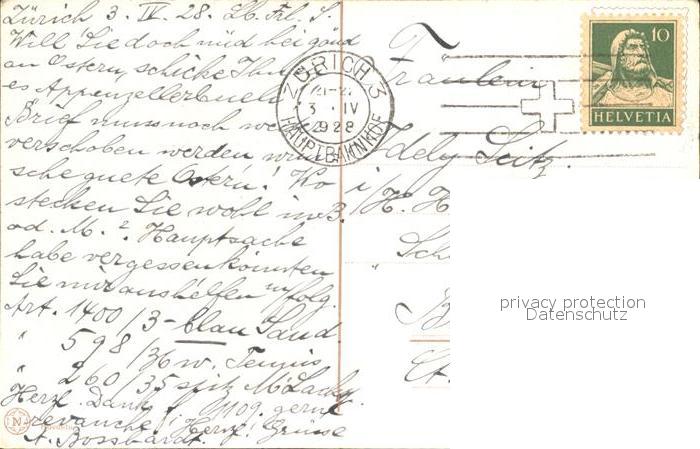 Zürich 3. IV. 28. Lb. Frl. S.
Will Sie doch nüd bei
an Ostern, schicke Ihn
es Appenzellerbueb
Brief muss noch
verschoben werden
schegnete Ostern! Ko
stecken Sie wohl in 3.
od. M.2. Hauptsache
habe vergessen könnten
Sie mir aushelfen m/folg.
Art. 1400/3 - blau Sand
" 598/36 w. Tennis
" 260/35 spitz M. Lack
Herzl. Dank f. 1109. gerne
revanche! Herzl. Grüsse
A. Bosshardt.
ZÜRICH 3
3. IV
1928
HAUPTBAHNHOF
10
HELVETIA
Fräulein
Idely Seitz.
i/H. H
Sch
St.
privacy protection
Datenschutz
N